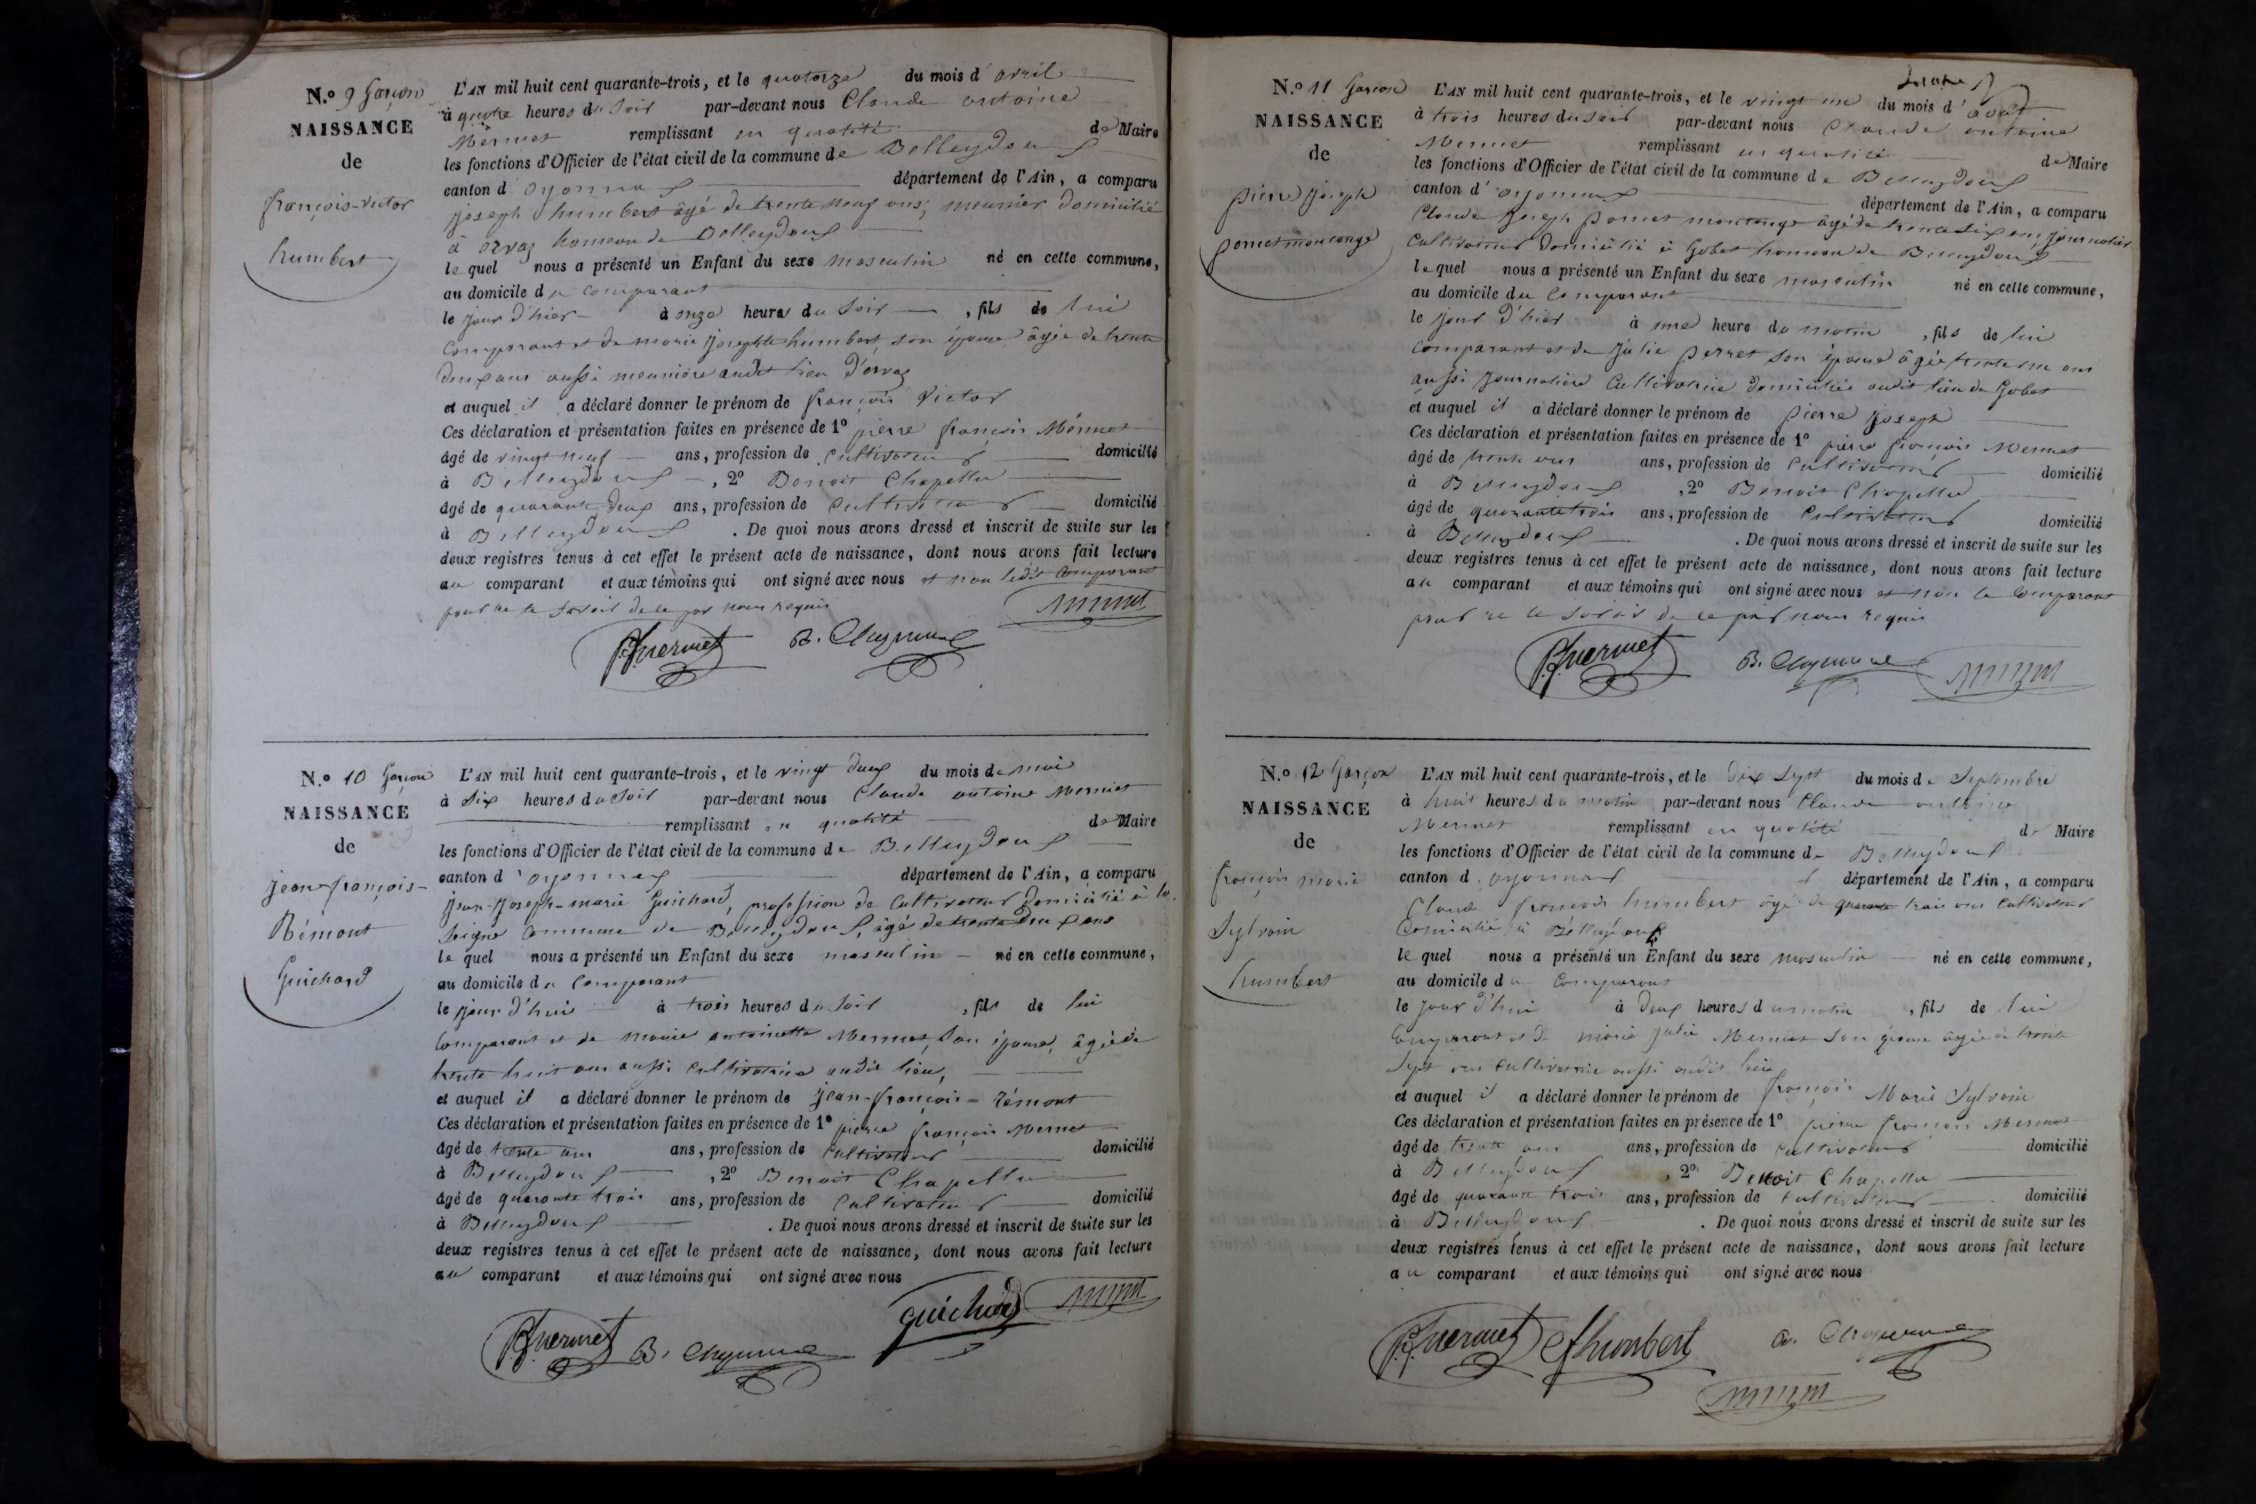 N.o 9 garçon
NAISSANCE
de
françois-victor
humbert
L'AN mil huit cent quarante-trois, et le quatorze du mois d'avril
à quatre heures du soir par-devant nous Claude antoine
Mermet remplissant en qualité de Maire
les fonctions d'Officier de l'état civil de la commune de Belleydoux
canton d'oyonnax département de l'Ain, a comparu
joseph humbert âgé de trente neuf ans, meunier domicilié
à orvaz hameau de Belleydoux
lequel nous a présenté un Enfant du sexe masculin né en cette commune,
au domicile du comparant
le jour d'hier à onze heures du soir, fils de lui
comparant et de marie josephte humbert, son épouse âgée de trente
deux ans aussi meunière audit lieu d'orvaz
et auquel il a déclaré donner le prénom de françois victor
Ces déclaration et présentation faites en présence de 1º pierre françois Mermet
âgé de vingt neuf ans, profession de cultivateur domicilié
à Belleydoux, 2º Benoit Chapellu
âgé de quarante deux ans, profession de cultivateur domicilié
à Belleydoux. De quoi nous avons dressé et inscrit de suite sur les
deux registres tenus à cet effet le présent acte de naissance, dont nous avons fait lecture
au comparant et aux témoins qui ont signé avec nous et non ledit comparant
pour ne le savoir de ce par nous requis
P.f. mermet
N.o 10 garçon
NAISSANCE
de
jean-françois-
Rémont
Guichard
L'AN mil huit cent quarante-trois, et le vingt deux du mois de mai
à six heures du soir par-devant nous Claude antoine Mermet
remplissant en qualité de Maire
les fonctions d'Officier de l'état civil de la commune de Belleydoux
canton d'oyonnax département de l'Ain, a comparu
jean-joseph-marie Guichard, profession de cultivateur domicilié à la
commune de Belleydoux, âgé de trente deux ans
lequel nous a présenté un Enfant du sexe masculin né en cette commune,
au domicile du comparant
le jour d'hui à trois heures du soir, fils de lui
comparant et de marie antoinette Mermet, son épouse, âgée de
trente huit ans aussi cultivatrice audit lieu,
et auquel il a déclaré donner le prénom de jean-françois-rémont
Ces déclaration et présentation faites en présence de 1º pierre françois Mermet
âgé de trente ans ans, profession de cultivateur domicilié
à Belleydoux, 2º Benoit Chapellu
âgé de quarante trois ans, profession de cultivateur domicilié
à Belleydoux. De quoi nous avons dressé et inscrit de suite sur les
deux registres tenus à cet effet le présent acte de naissance, dont nous avons fait lecture
au comparant et aux témoins qui ont signé avec nous
guichard
P.f. mermet
N.o 11 garçon
NAISSANCE
de
pierre joseph
L'AN mil huit cent quarante-trois, et le vingt un du mois d'août
à trois heures du soir par-devant nous Claude antoine
Mermet remplissant en qualité de Maire
les fonctions d'Officier de l'état civil de la commune de Belleydoux
canton d'oyonnax département de l'Ain, a comparu
Claude joseph âgé de trente six ans, journalier
cultivateur domicilié à Gobet hameau de Belleydoux
lequel nous a présenté un Enfant du sexe masculin né en cette commune,
au domicile du comparant
le jour d'hier à une heure du matin, fils de lui
comparant et de julie perret son épouse âgée trente un ans
aussi journalière cultivatrice domiciliée audit lieu de Gobet
et auquel il a déclaré donner le prénom de pierre joseph
Ces déclaration et présentation faites en présence de 1º pierre françois Mermet
âgé de trente ans ans, profession de cultivateur domicilié
à Belleydoux, 2º Benoit Chapellu
âgé de quarante trois ans, profession de cultivateur domicilié
à Belleydoux. De quoi nous avons dressé et inscrit de suite sur les
deux registres tenus à cet effet le présent acte de naissance, dont nous avons fait lecture
au comparant et aux témoins qui ont signé avec nous et non le comparant
pour ne le savoir de ce par nous requis
P.f. mermet
N.o 12 garçon
NAISSANCE
de
françois marie
Sylvain
humbert
L'AN mil huit cent quarante-trois, et le dix sept du mois de septembre
à huit heures du matin par-devant nous Claude antoine
Mermet remplissant en qualité de Maire
les fonctions d'Officier de l'état civil de la commune de Belleydoux
canton d'oyonnax département de l'Ain, a comparu
Claude françois humbert âgé de quarante trois ans cultivateur
domicilié à Belleydoux
lequel nous a présenté un Enfant du sexe masculin né en cette commune,
au domicile du comparant
le jour d'hui à deux heures du matin, fils de lui
comparant et de marie julie Mermet son épouse âgée de trente
sept ans cultivatrice aussi audit lieu
et auquel il a déclaré donner le prénom de françois Marie Sylvain
Ces déclaration et présentation faites en présence de 1º pierre françois Mermet
âgé de trente ans ans, profession de cultivateur domicilié
à Belleydoux, 2º Benoit Chapellu
âgé de quarante trois ans, profession de cultivateur domicilié
à Belleydoux. De quoi nous avons dressé et inscrit de suite sur les
deux registres tenus à cet effet le présent acte de naissance, dont nous avons fait lecture
au comparant et aux témoins qui ont signé avec nous
P.f. mermet Cf humbert